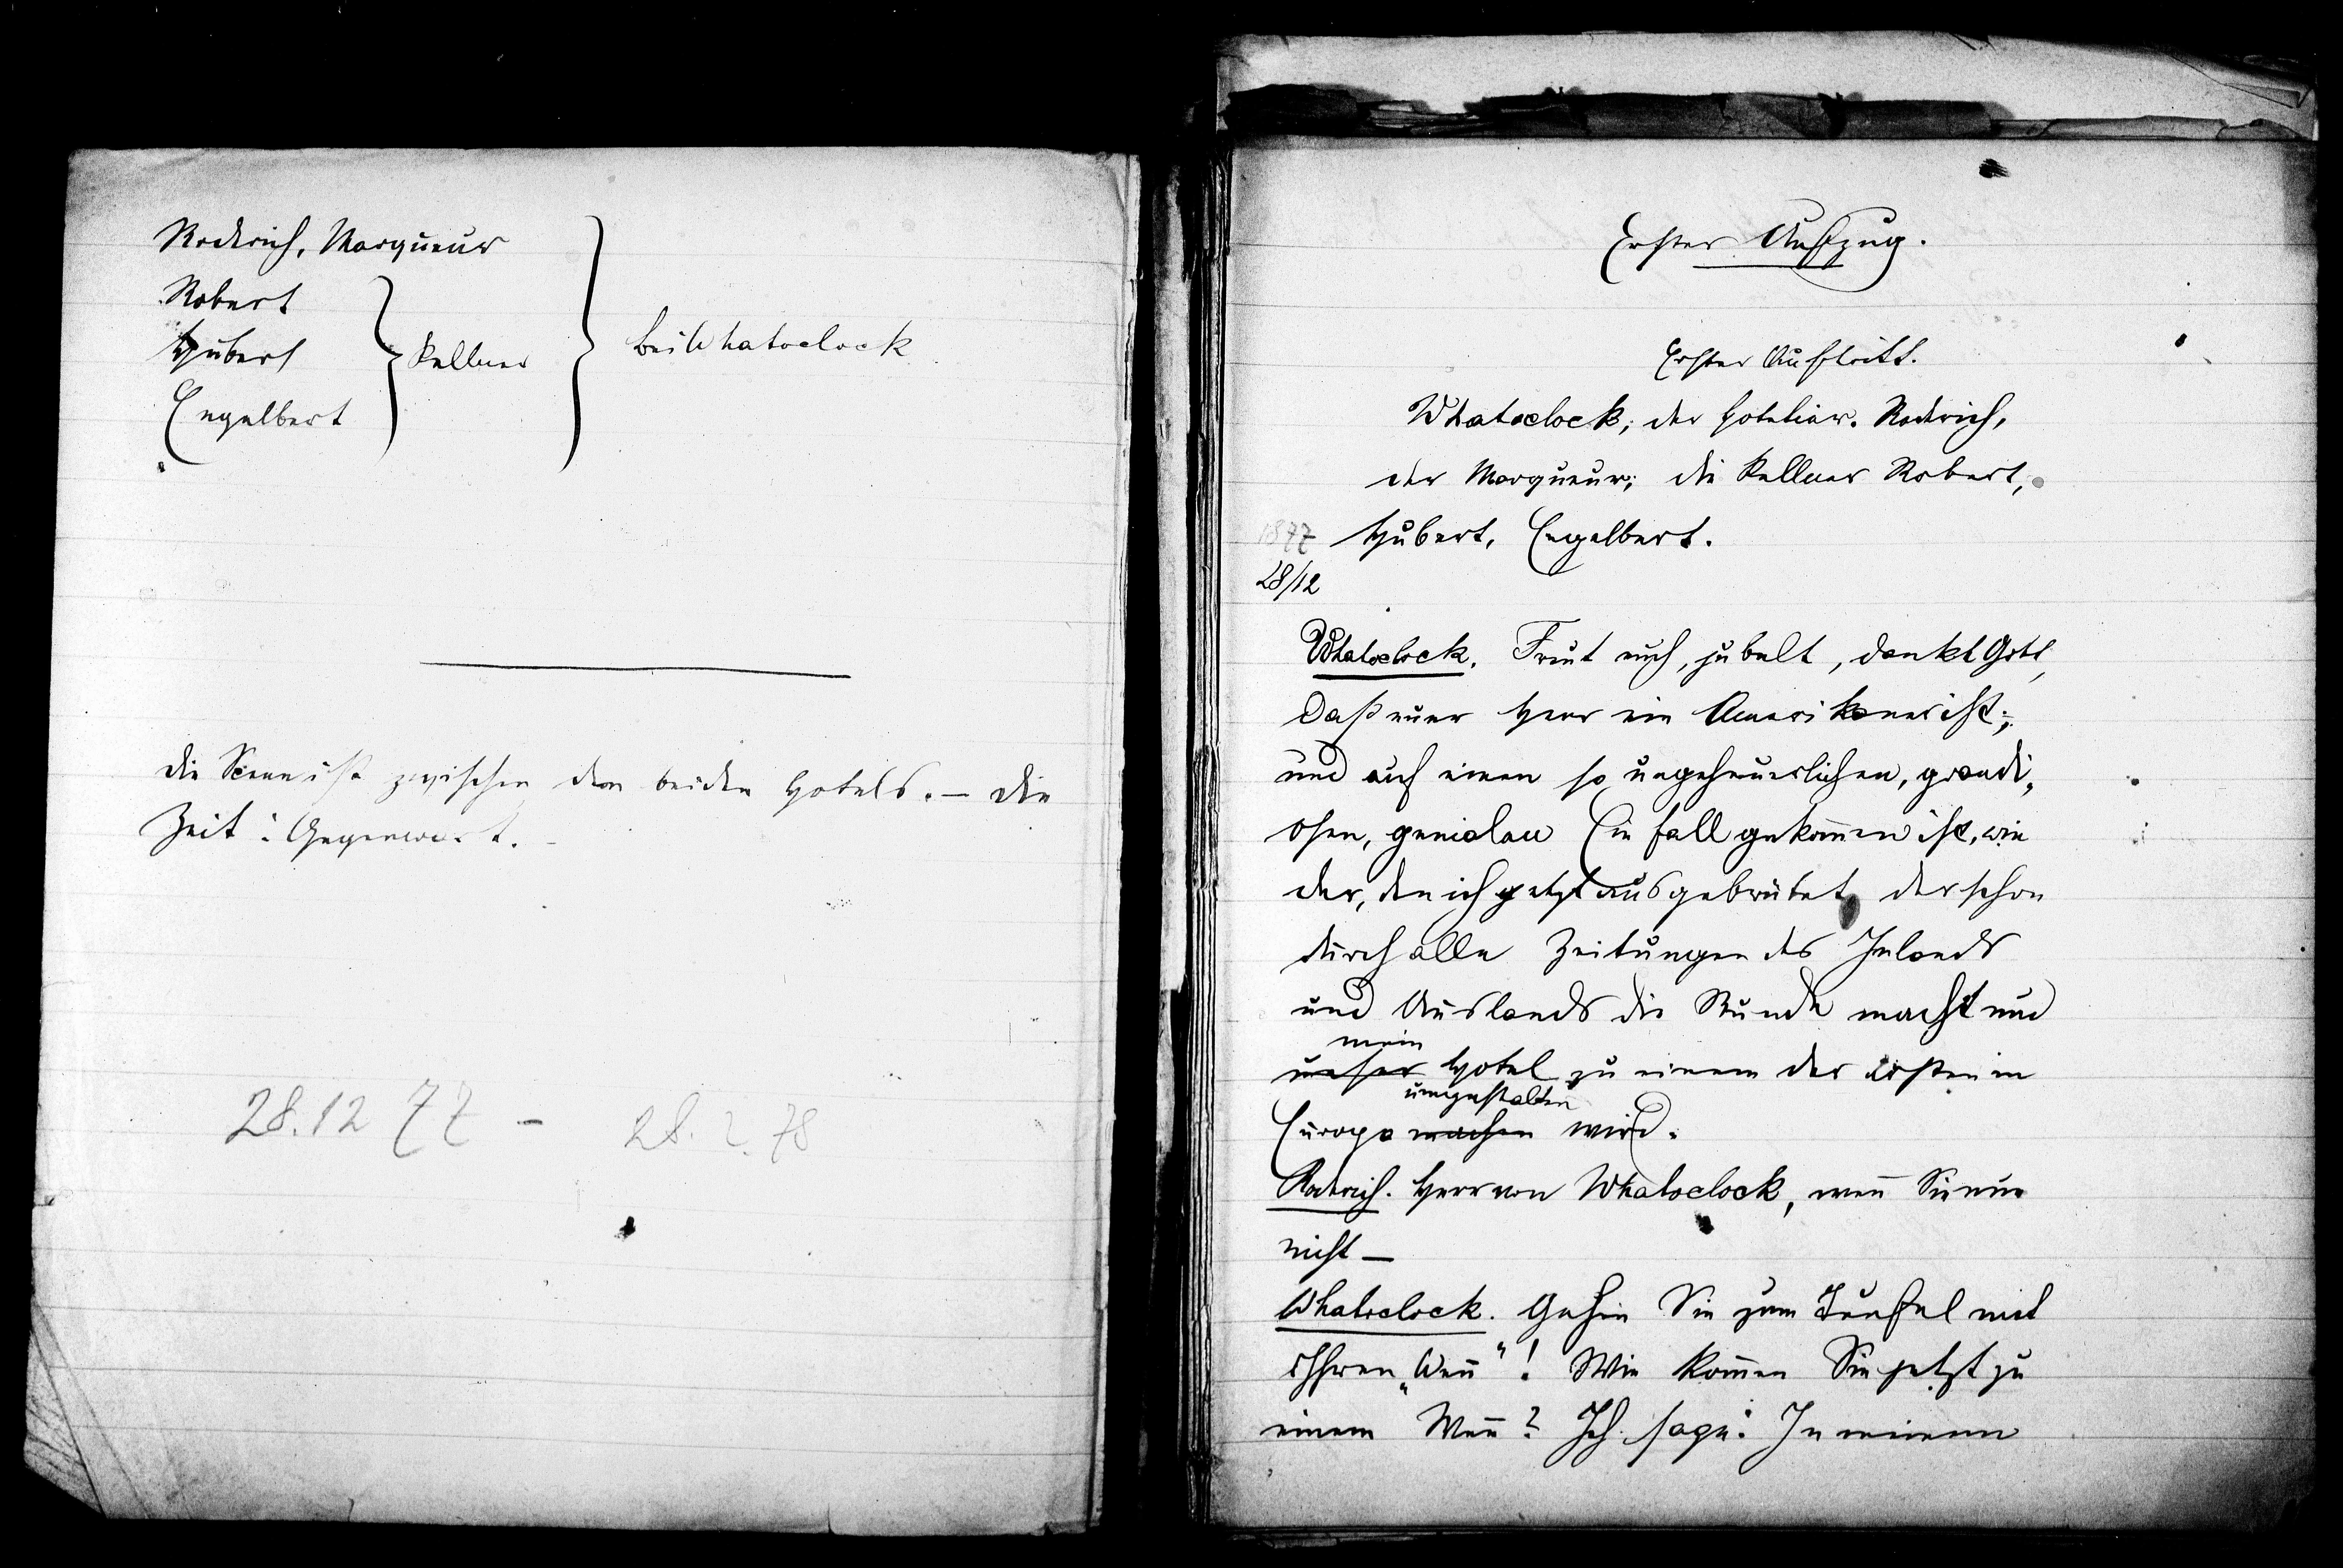 Rodrich, Marqueur
Robert
Hubert
Kellner
bei Whatoclock
Engelbert
die Scene ist zwischen den beiden Hotels. — die
Zeit: Gegenwart.
28.12 77 — 28. 2. 78
Erster Aufzug.
Erster Auftritt.
Whatoclock, der Hotelier. Rodrich,
der Marqueur; die Kellner Robert,
1877 Hubert, Engelbert.
28/12
Whatoclock. Freut euch, jubelt, dankt Gott,
daß euer Herr ein Amerikaner ist;
und auf einen so ungeheuerlichen, grandi„
osen, genialen Einfall gekom̄en ist, wie
der, den ich jetzt ausgebrütet, der schon
durch alle Zeitungen des Inlands
und Auslands die Runde macht und
mein
unser Hotel zu einem der ersten in
umgestalten
Europa machen wird.
Rodrich. Herr von Whatoclock, wen̄ Sie nur
nicht —
Whatoclock. Gehen Sie zum Teufel mit
Ihren „Wen̄“! Wie kom̄en Sie jetzt zu
einem Wen̄? Ich sage: In meinem